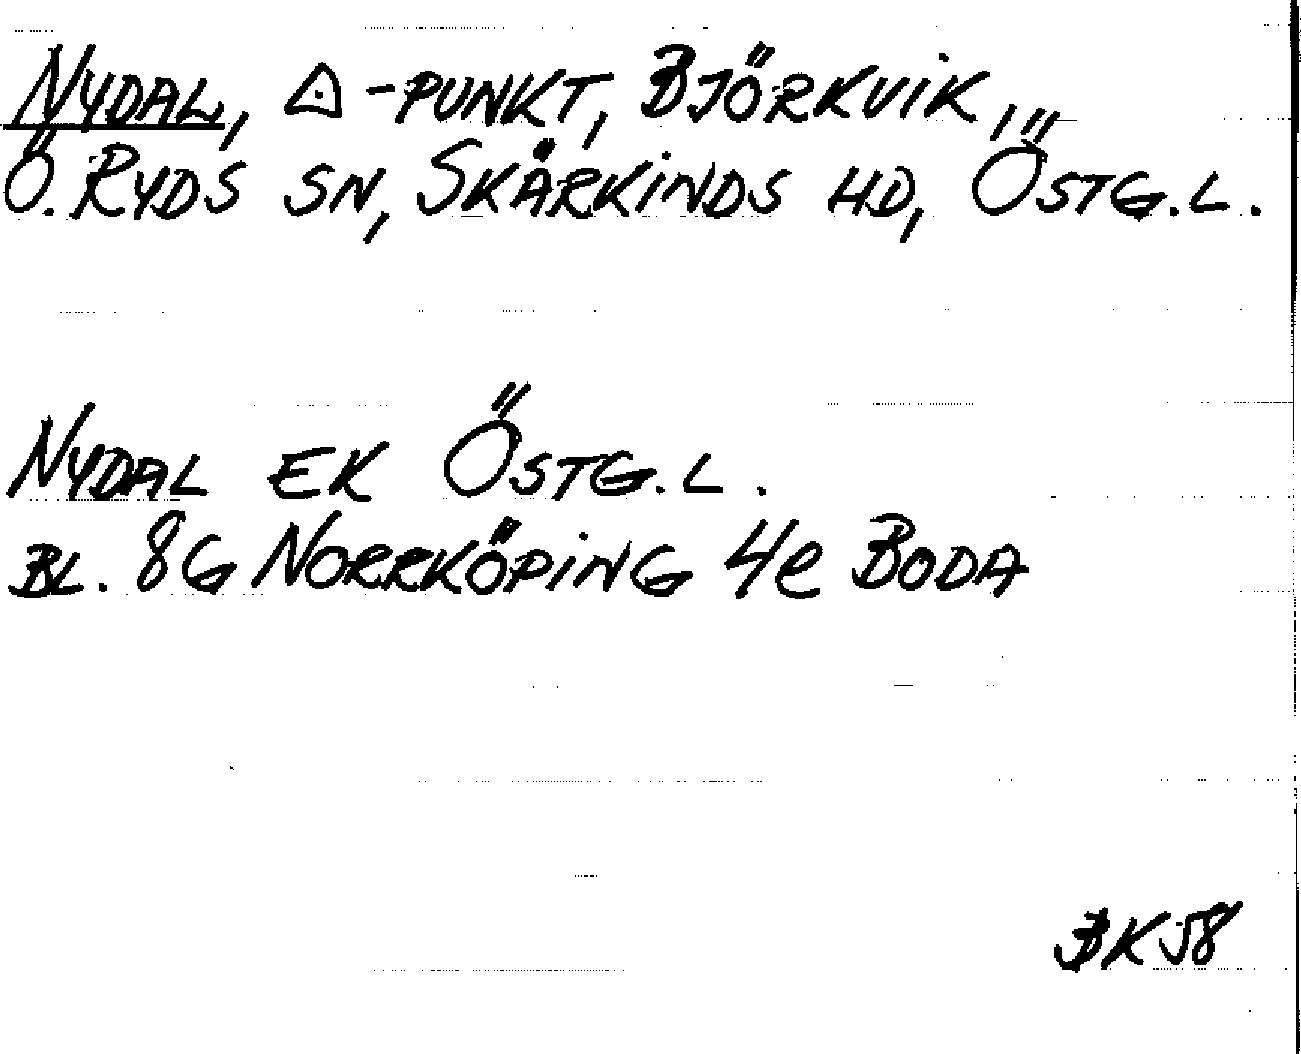 NYDAL, △-PUNKT, BJÖRKVIK,
Ö. RYDS SN, SKÄRKINDS HD, ÖSTG.L.
NYDAL EK ÖSTG.L.
BL. 8G NORRKÖPING 4e BODA
BK58